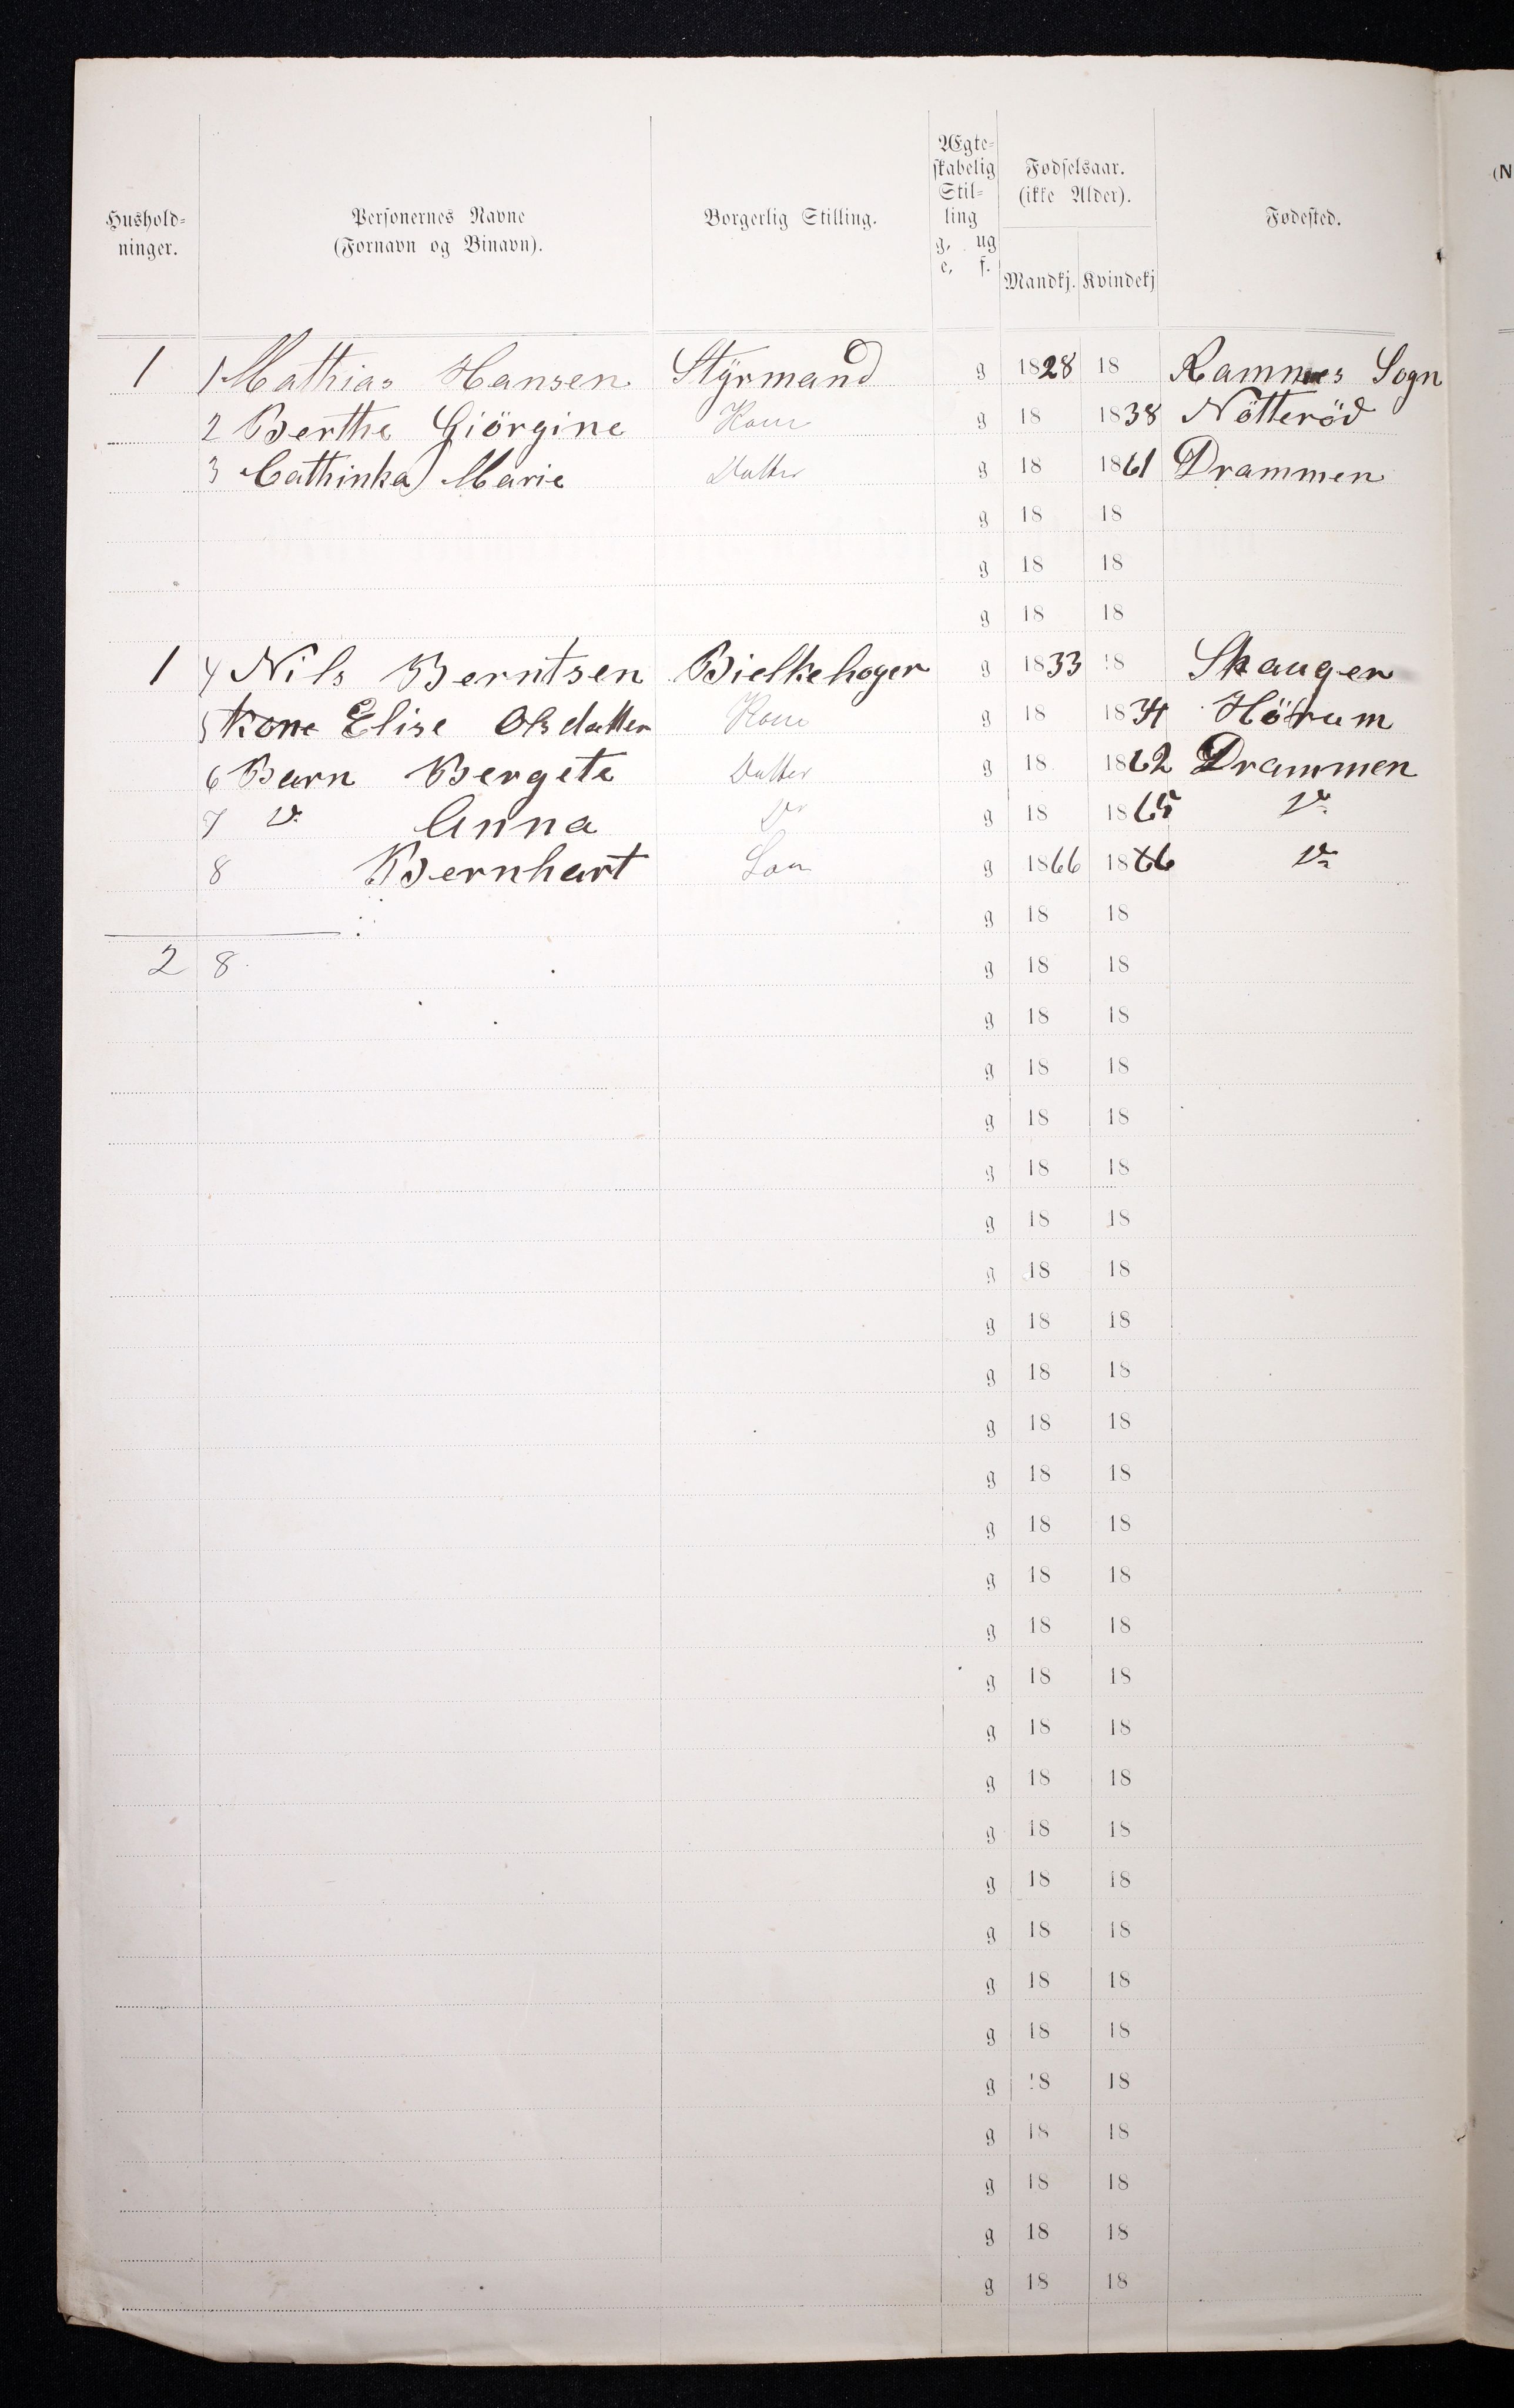 Hushold-
ninger.
Personernes Navne
(Fornavn og Binavn).
Borgerlig Stilling.
Ægte-
skabelig
Stil-
ling
g, ug
e, f.
Fødselsaar.
(ikke Alder).
Mandkj. Kvindekj
Fødested.
1 1 Mathias Hansen Styrmand g 1828 18 Ramnes Sogn
2 Berthe Giörgine Kone g 18 1838 Nötteröd
3 Cathinka Marie Datter g 18 1861 Drammen
g 18 18
g 18 18
g 18 18
1 4 Nils Berntsen Bielkehoger g 1833 18 Skauger
5 Kone Elise Olsdatter Kone g 18 1834 Hörum
6 Barn Bergete Datter g 18 1862 Drammen
7 do Anna Do g 18 1865 do
8 Bernhart Søn g 1866 1866 do
g 18 18
2 8 g 18 18
g 18 18
g 18 18
g 18 18
g 18 18
g 18 18
g 18 18
g 18 18
g 18 18
g 18 18
g 18 18
g 18 18
g 18 18
g 18 18
g 18 18
g 18 18
g 18 18
g 18 18
g 18 18
g 18 18
g 18 18
g 18 18
g 18 18
g 18 18
g 18 18
g 18 18
g 18 18
(N